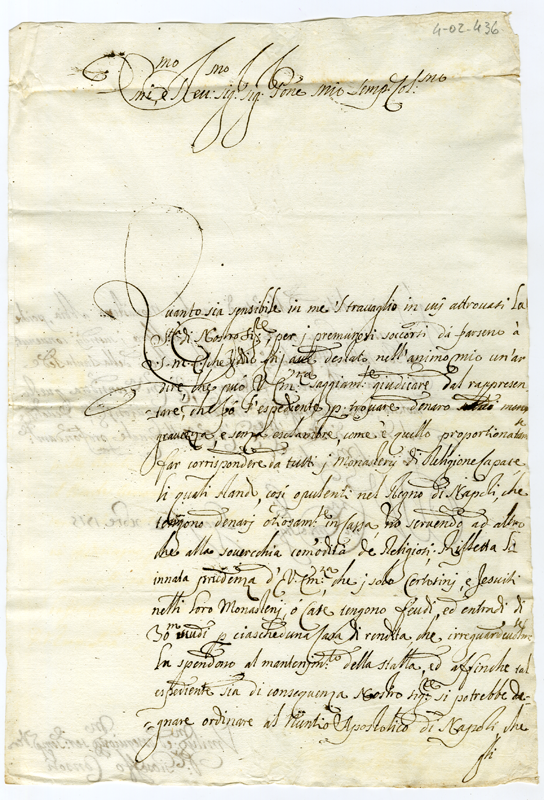 4-02-436
Em̃o e Rev:mo Sig: Sig: Pñe mio Semp: Col:mo
Quanto sia sensibile in me il travaglio in cui attrovasi La
S.tà di Nostro Sig.re per i premurosi soccorsi da farseno à
S. M. Ces. destato nell'animo mio un'ar
dire, che può V. Em.za saggiam.te giudicare dal rappresen
tare, che l'espediente p. trovare denaro
gravezza, e senza come è quello proportionatam.te
far corrispondere da tutti i Monasterij di Religione
li quali stando così opulenti nel Regno di Napoli, che
tengono denari otiosam.te in cassa no servendo ad altro
che alla soverchia comodità de Religiosi; Rifletta L'
innata prudenza d'V. Em.za, che i soli Certosini, e Jesuiti
nelli loro Monasterij, o Case tengono feudi, ed entradi di
30m scudi p ciascheduna Casa di rendita, che
La spendono al mantenim.to della stalla, ed affinche tal
espediente sia di consequenza Nostro Sig.re si potrebbe de
gnare ordinare al Nuntio Apostolico di Napoli, che
gli